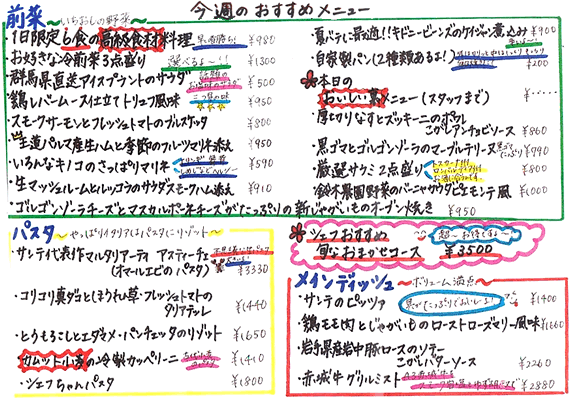 今週のおすすめメニュー
前菜 〜いちおしの野菜〜
・1日限定6食の高級食材料理 早い者勝ち! ¥980
・お好きな冷前菜3点盛り 選べるよ〜!! ¥1300
・群馬県直送アイスプラントのサラダ ¥500
・鶏レバームース仕立てトリュフ風味 ¥950
・スモークサーモンとフレッシュトマトのブルスケッタ ¥800
・王道パルマ産生ハムと季節のフルーツマリネ添え ¥950
・いろんなキノコのさっぱりマリネ ¥590
・生マッシュルームとルッコラのサラダスモークハム添え ¥910
・ゴルゴンゾーラチーズとマスカルポーネチーズがたっぷりの新じゃがいものオーブン焼き ¥950
・夏バテに最適!!キドニービーンズのケイジャン煮込み ¥900
・自家製パン(2種類あるよ!) ¥200
本日の
おいしい裏メニュー(スタッフまで) ¥・・・・・
・厚切りなすとズッキーニのボラ
こがしアンチョビソース ¥860
・黒ゴマとゴルゴンゾーラのマーブルテリーヌ ¥990
・厳選サラミ2点盛り ¥800
・鈴木農園野菜のバーニャカウダピエモンテ風 ¥1000
パスタ 〜やっぱりイタリアはパスタにリゾット〜
・サンテ代表作マルタリアーティ アスティーチェ
(オマールエビのパスタ) ¥3330
・コリコリ真ダコとほうれん草・フレッシュトマトの
タリアテッレ ¥1440
・とうもろこしとエダマメ・パンチェッタのリゾット ¥1650
・カムット小麦の冷製カッペリーニ ¥1410
・シェフちゃんパスタ ¥1800
シェフおすすめ
旬なおまかせコース ¥3500
メインディッシュ 〜ボリューム満点〜
・サンテのピッツァ ¥1400
・鶏モモ肉とじゃがいものローストローズマリー風味 ¥1660
・岩手県産岩中豚ロースのソテー
こがしバターソース ¥2260
・赤城牛グリルミスト ¥2880